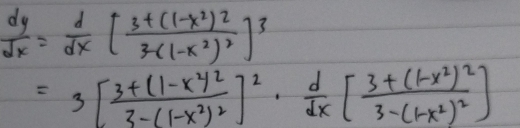 dy/dx = d/dx [ (3+(1-x²)²) / (3-(1-x²)²) ]³
= 3 [ (3+(1-x²)²) / (3-(1-x²)²) ]² · d/dx [ (3+(1-x²)²) / (3-(1-x²)²) ]